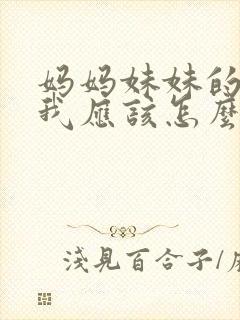 妈妈妹妹的
我应该怎麼
浅見百合子/